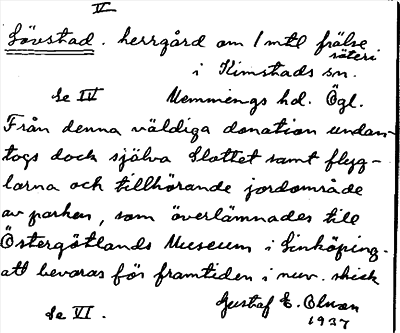 V
Lövstad. herrgård om 1 mtl frälse
säteri
i Kimstads sn.
Se IV Memmings hd. Ögl.
Från denna väldiga donation undan-
togs dock själva slottet samt flyg-
larna och tillhörande jordområde
av parken, som överlämnades till
Östergötlands Museum i Linköping-
att bevaras för framtiden i nuv. skick
Gustaf E. Olsson
Se VI. 1937